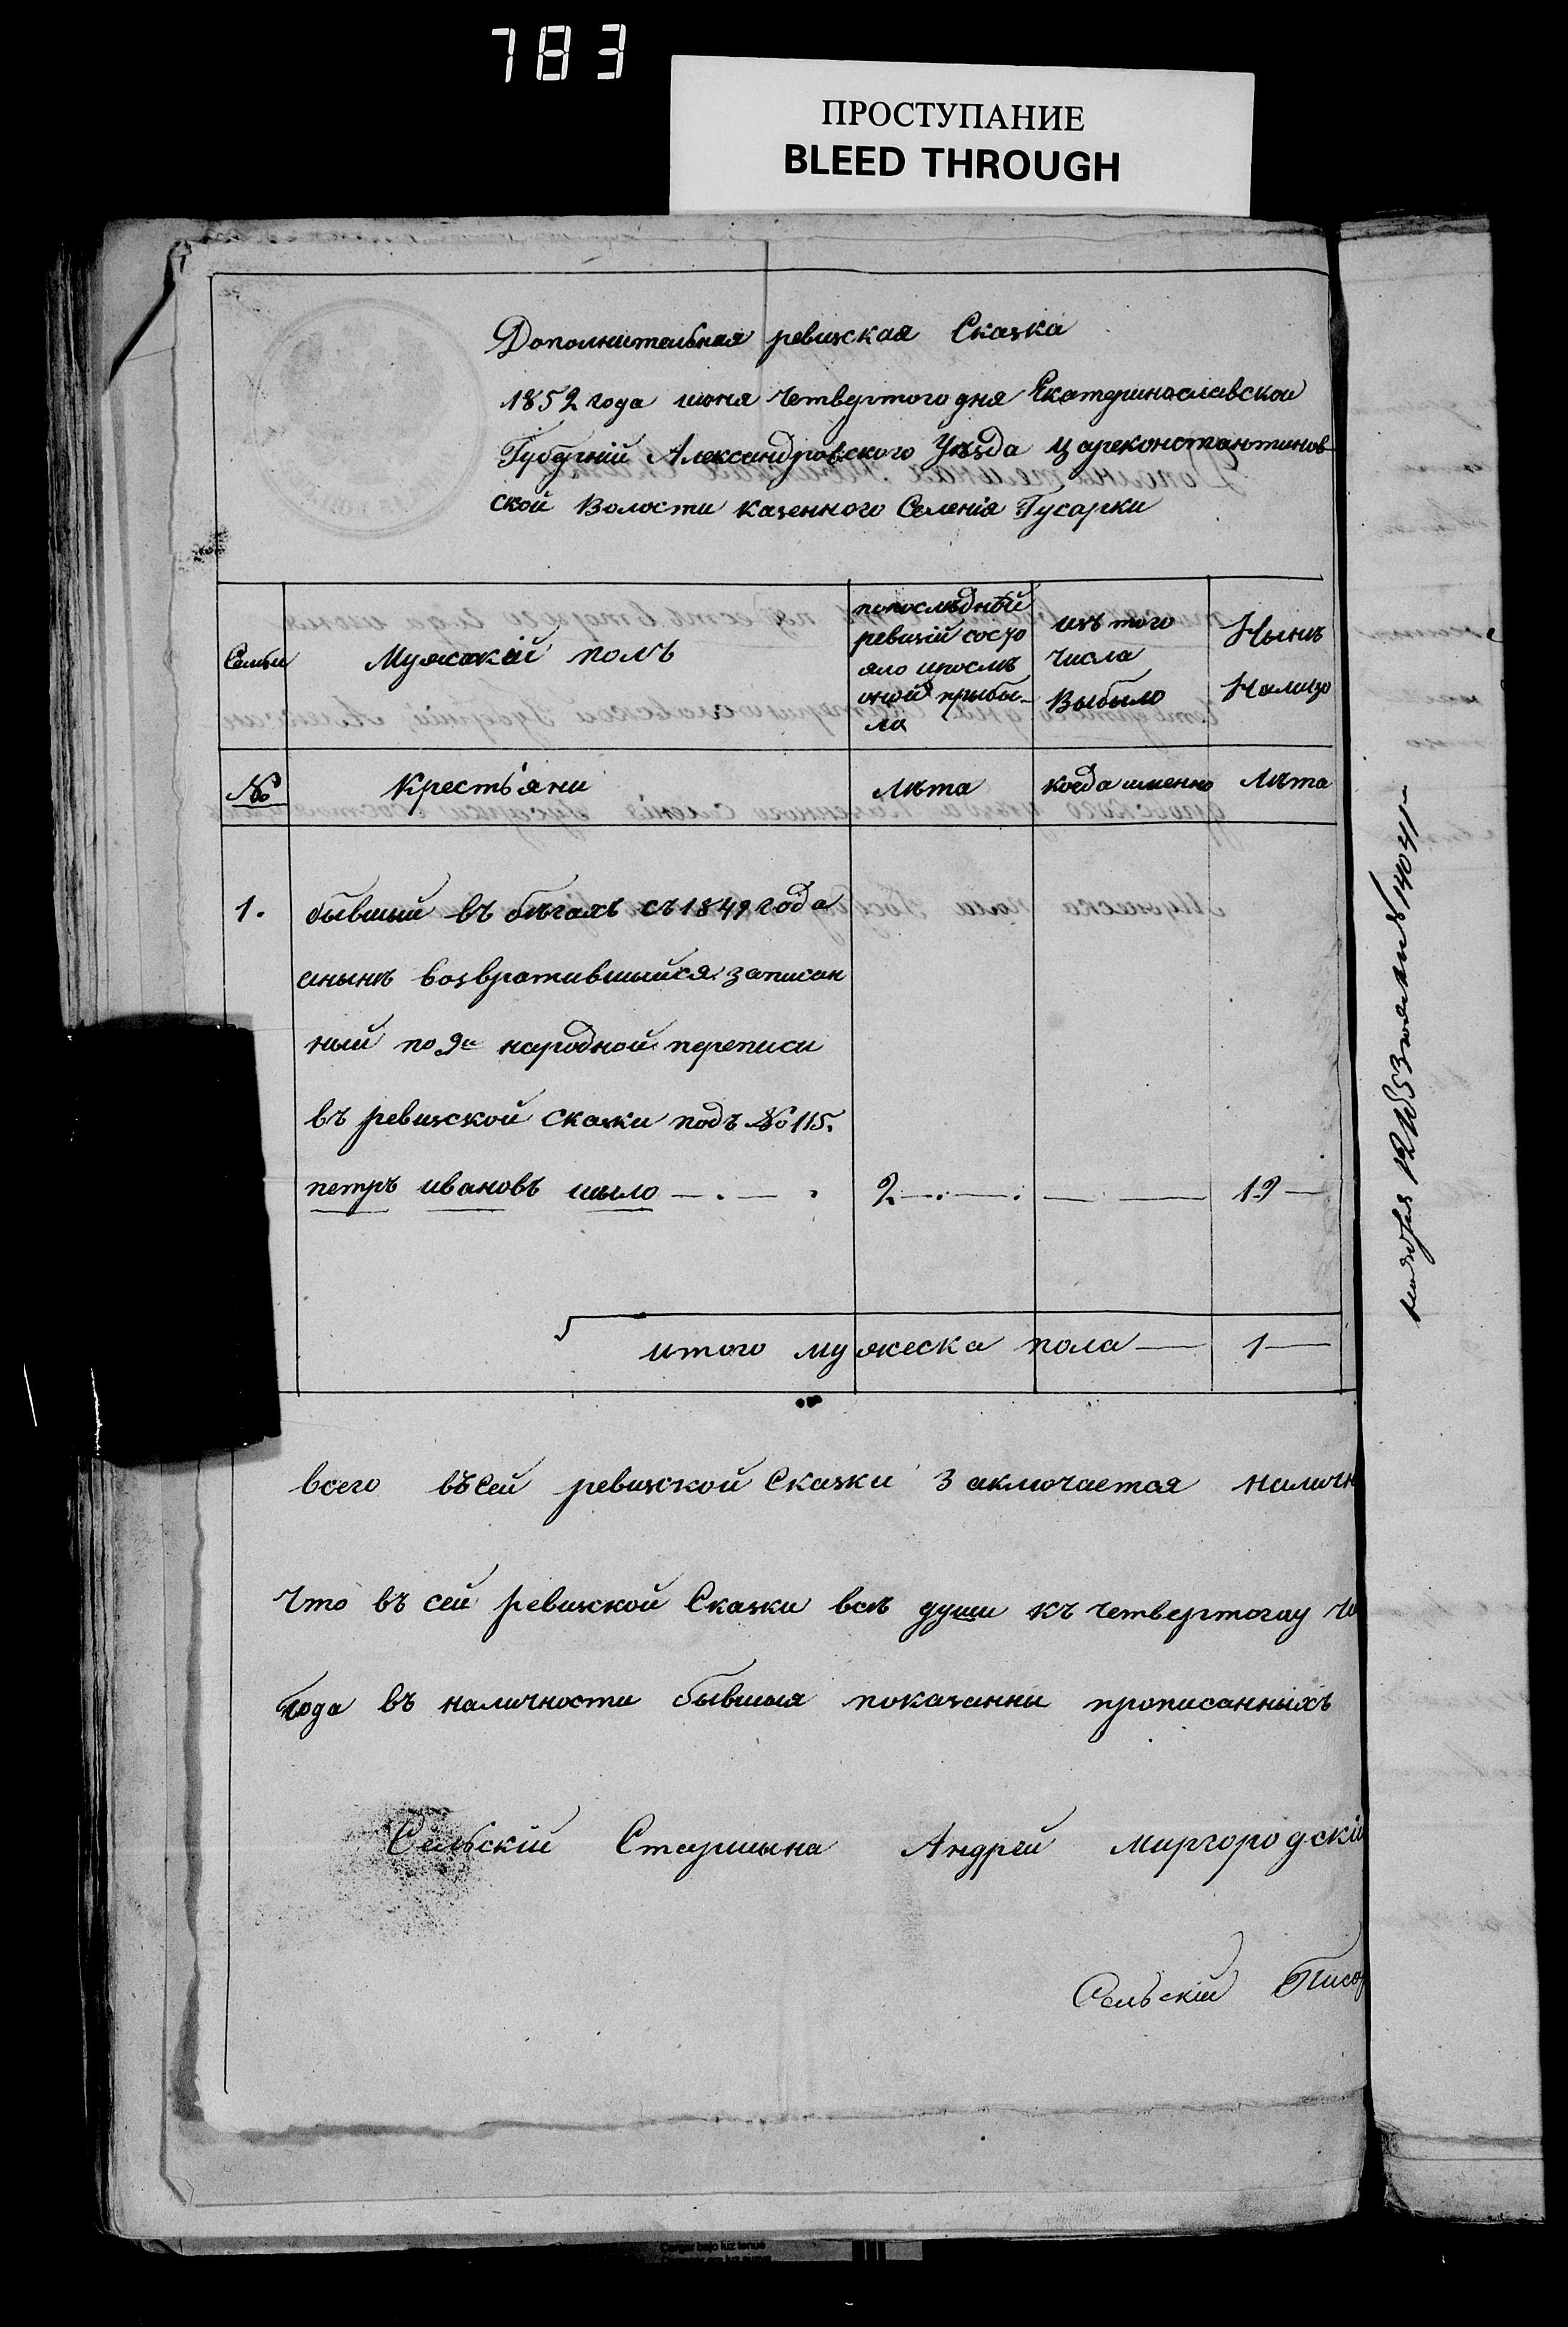 783
ПРОСТУПАНИЕ
BLEED THROUGH
Дополнительная ревизская Сказка
1852 года июня четвертого дня Екатеринославской
Губерніи Александровского Уѣзда Цареконстантинов
ской Волости казенного Селенія Гусарки
Семьи
Мужскій полъ
попослѣдней
ревизій состо
яло ипослѣ
оной прибы-
ла
изъ того
числа
Выбыло
Нынѣ
Налицо
№
Крестьяни
Лѣта
когда именно
Лѣта
1. бывший въ бѣгахъ съ 1849 года
анынѣ возвратившийся записан
ный по 9й народной переписи
въ ревизской сказки подъ № 115.
петръ ивановъ шыло 2 19
итого мужеска пола 1
всего въ сей ревизской Сказки заключается наличн
Что въ сей ревизской Сказки всѣ души къ четвертогау
года въ наличности бывшия показанны прописанныхъ
Сельскій Старшына Андрей миргородскій
Сельскій Писар